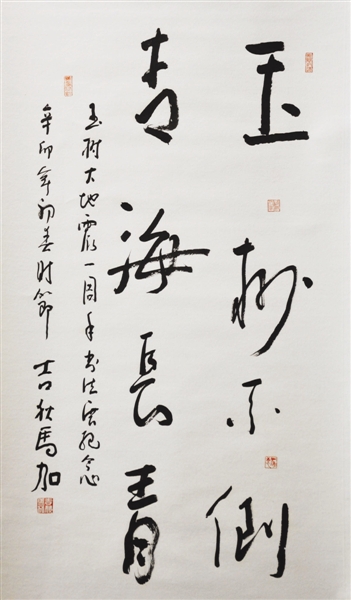 玉树不倒
青海長青
玉树大地震一周年书法纪念
辛卯年初春时節 吉狄馬加